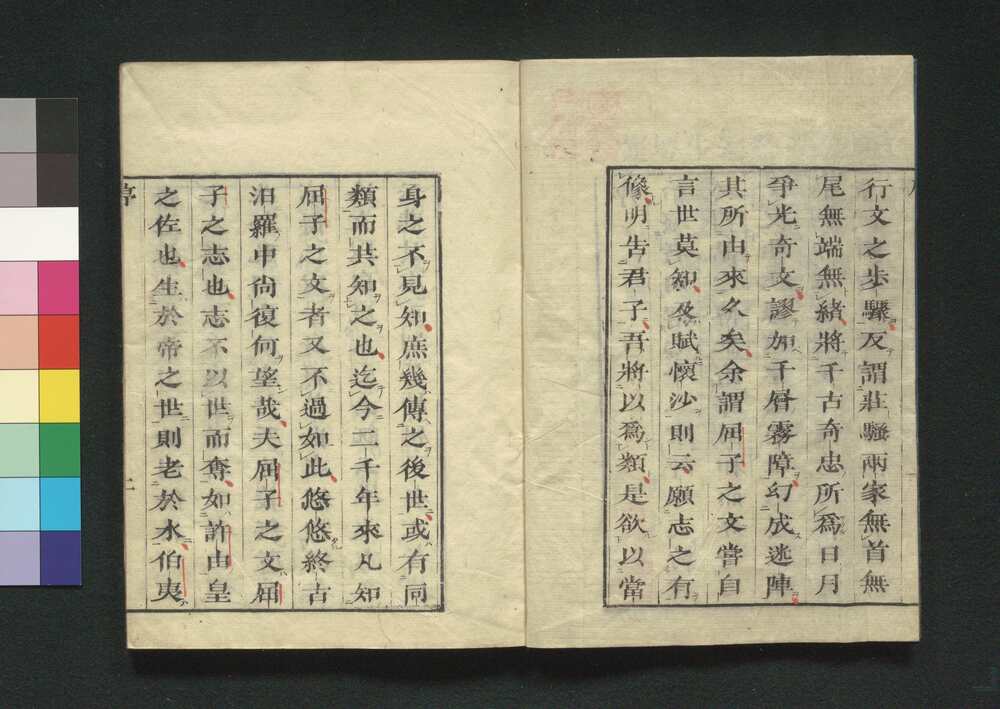 行文之步驟反謂莊騷兩家無首無
尾無端無緒將千古奇忠所爲日月
爭光奇文謬加千層霧障幻成迷陣
其所由來久矣余謂屈子之文嘗自
言世莫知及賦懷沙則云願志之有
像明告君子吾將以爲類是欲以當
身之不見知庶幾傳之後世或有同
類而共知之也迄今二千年來凡知
屈子之文者又不過如此悠悠終古
汨羅中尚復何望哉夫屈子之文屈
子之志也志不以世而奪如許由皇
之佐也生於帝之世則老於水伯夷